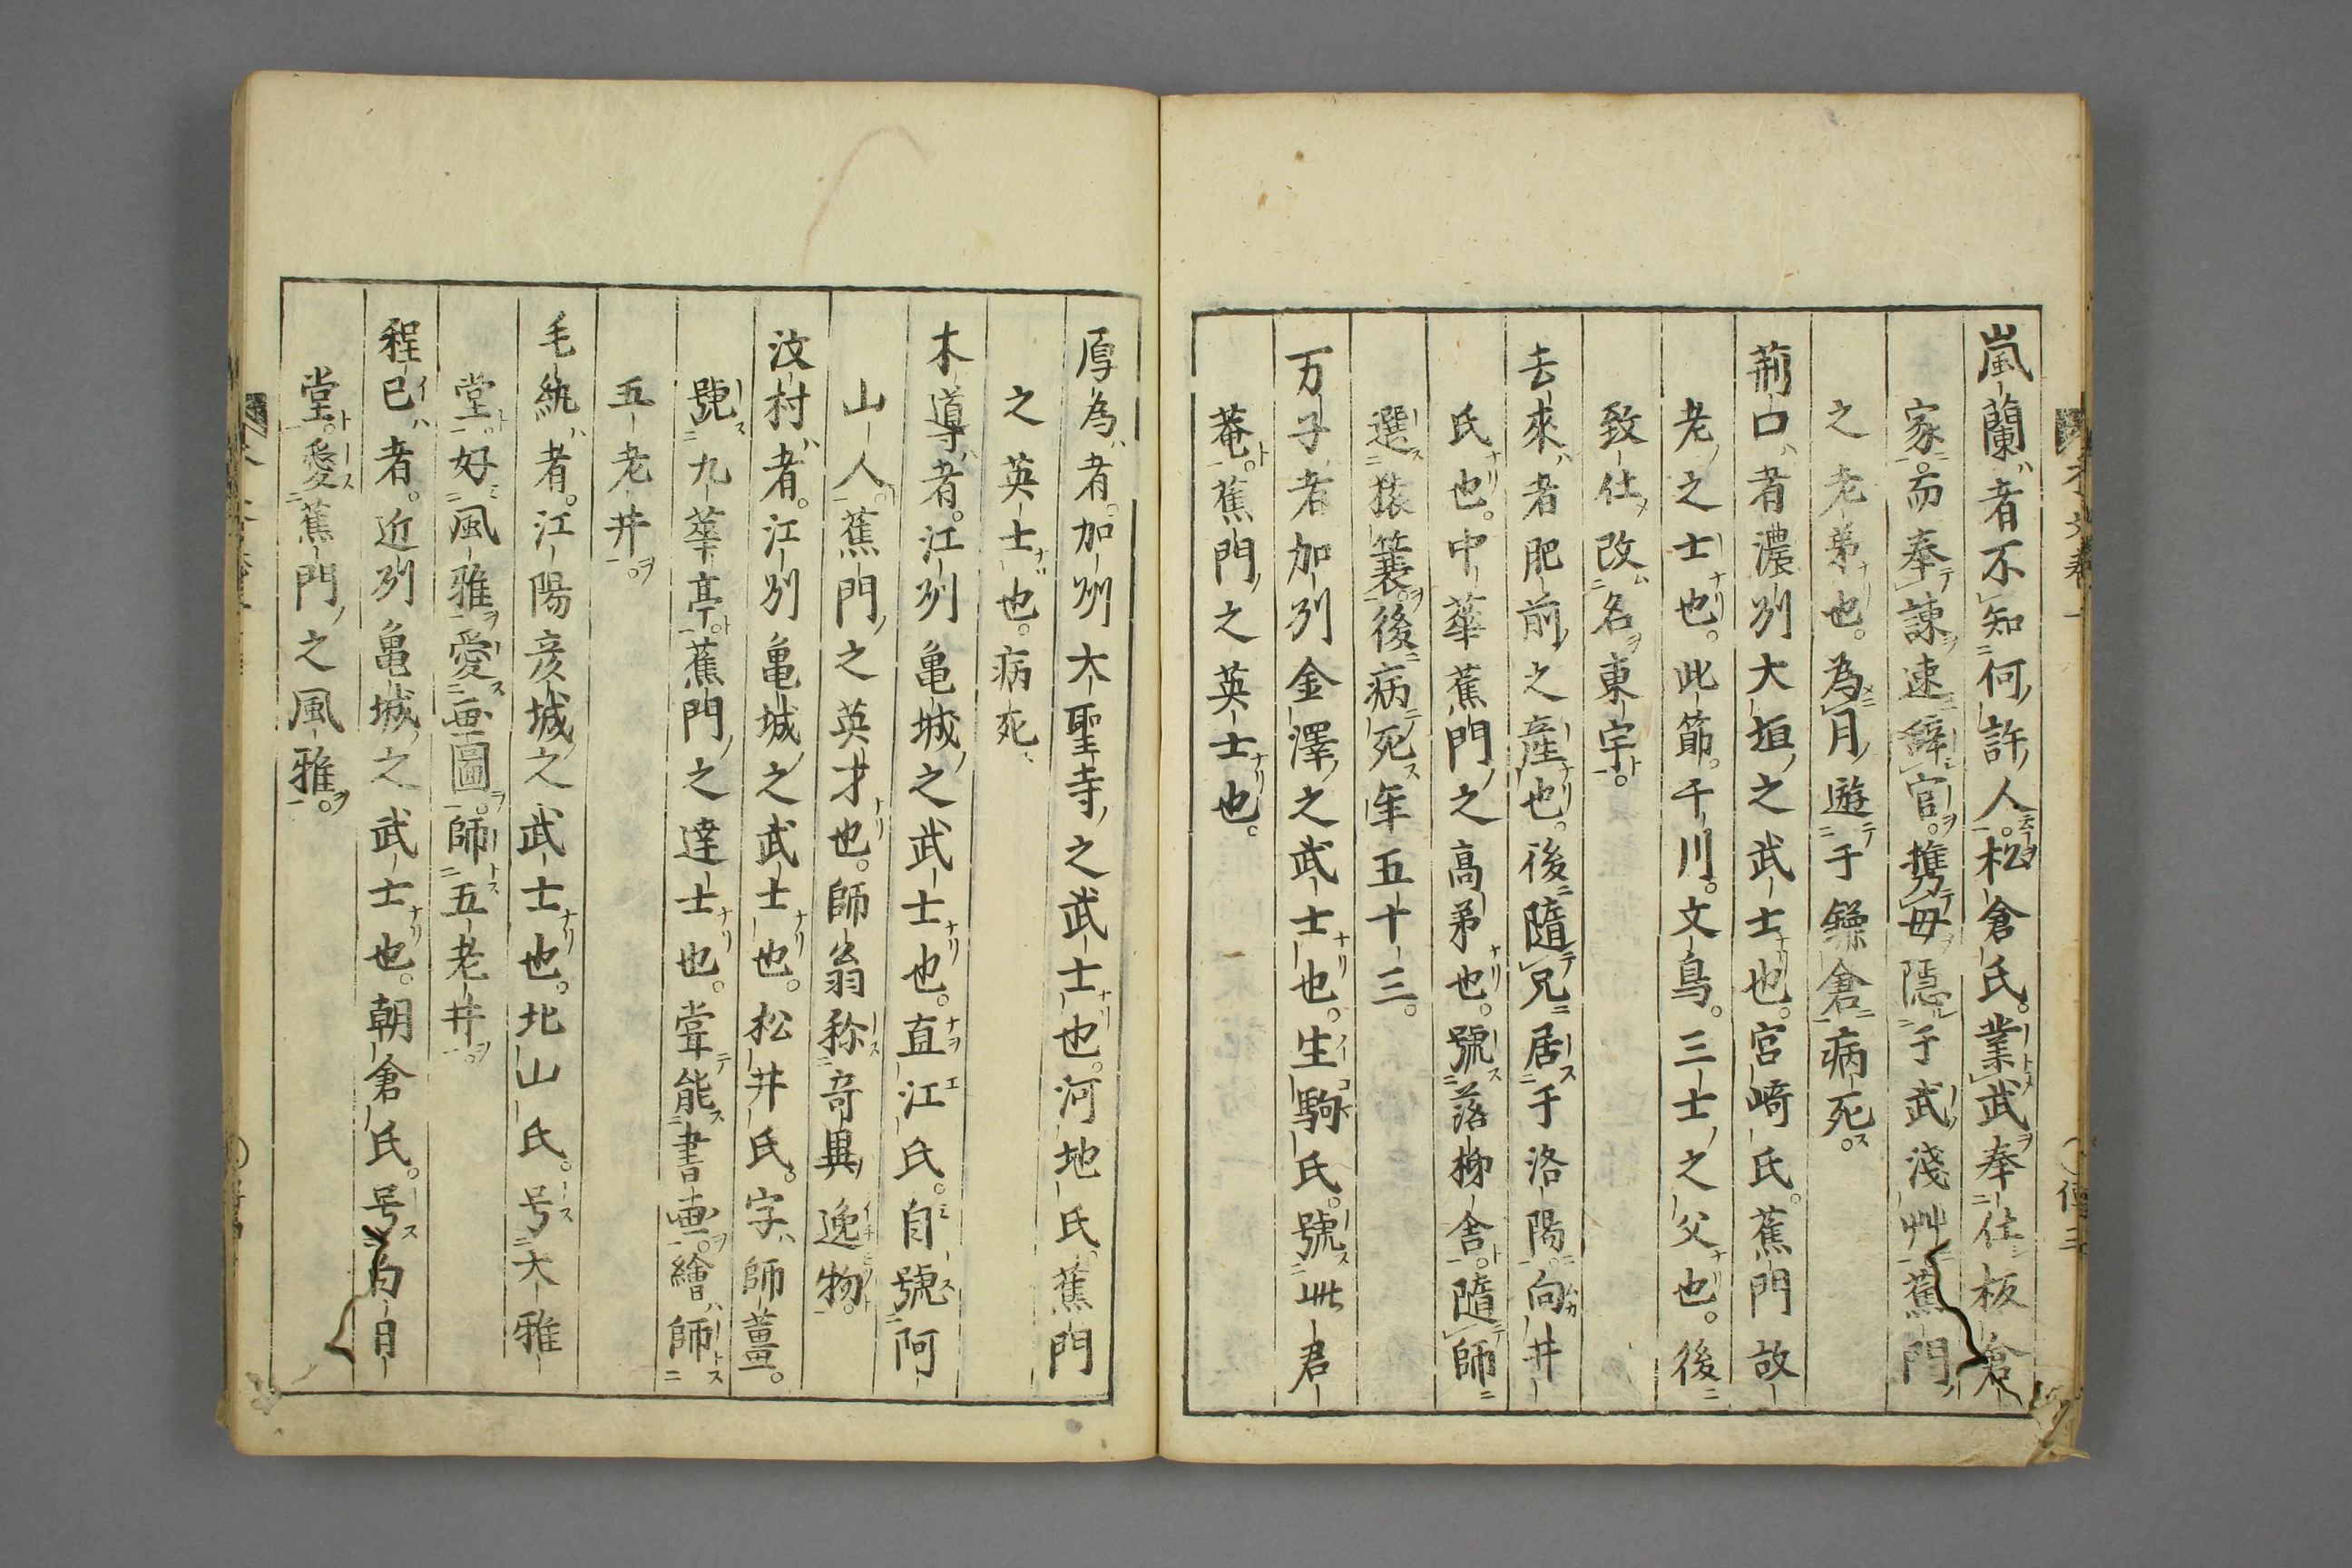 嵐蘭者不知何許人松倉氏。業武奉仕板倉
家。而奉諫速辭官。携母隠于武淺艸蕉門
之老弟也。為月遊于鎌倉病死。
荊口者濃刕大垣之武士也。宮﨑氏。蕉門故
老之士也。此節。千川。文鳥。三士之父也。後
致仕改名東宇。
去來者肥前之産也。後隨兄居于洛陽。向井
氏也。中華蕉門之高弟也。號落柳舎。隨師
選猿簑。後病死年五十三。
万子者加刕金澤之武士也。生駒氏。號此君
菴。蕉門之英士也。
厚為者。加刕大聖寺之武士也。河地氏。蕉門
之英士也。病死
木導者。江刕亀城之武士也。直江氏。自號阿
山人。蕉門之英才也。師翁称竒異逸物。
汶村者。江刕亀城之武士也。松井氏。字師薑。
號九華亭。蕉門之達士也。甞能書画。繪師
五老井。
毛紈者。江陽彦城之武士也。北山氏。号大雅
堂。好風雅愛画圖。師五老井。
程已者。近刕亀城之武士也。朝倉氏。号白日
堂。愛蕉門之風雅。